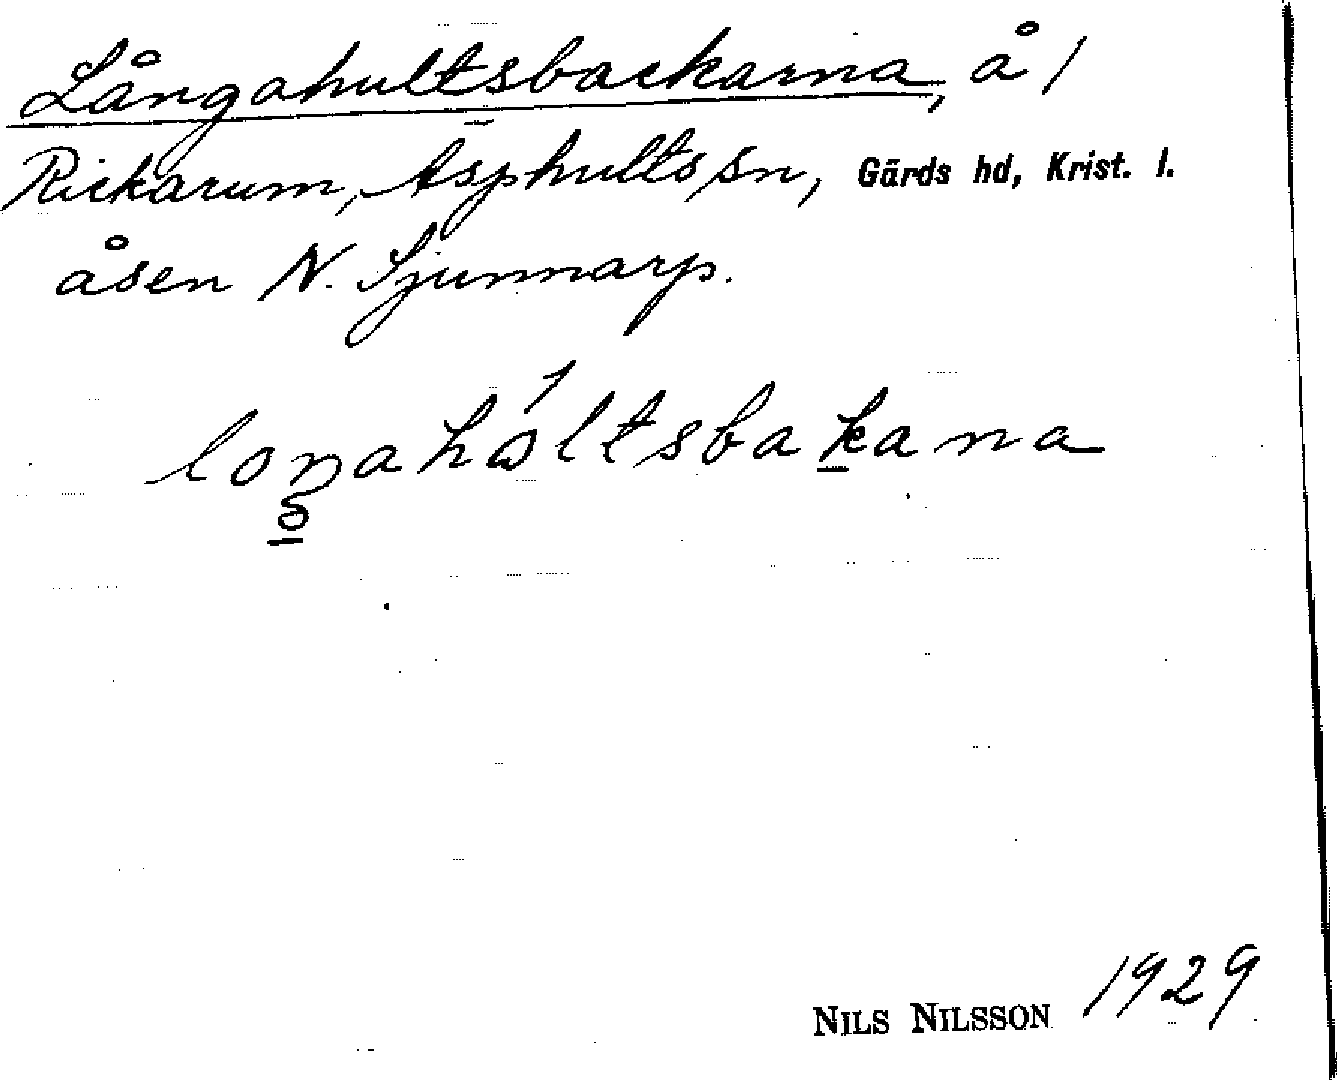 Långahultsbackarna, å 1
Rickarum, Äsphults sn, Gärds hd, Krist. l.
åsen N. Sjunnarp.
loŋahóltsbakana
NILS NILSSON 1929